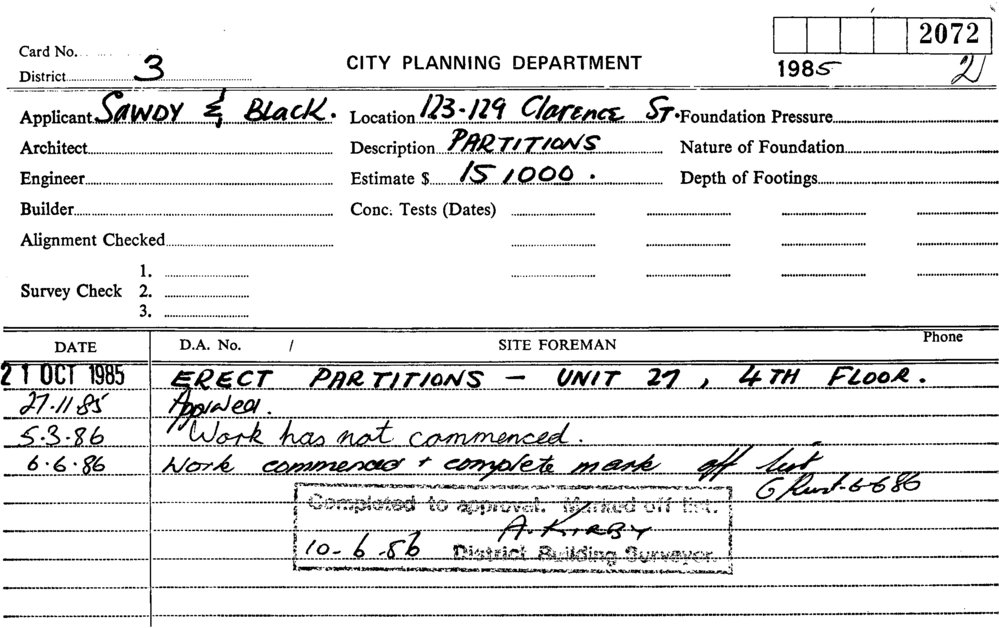 2072
Card No.
CITY PLANNING DEPARTMENT
1985 2
District 3
Applicant SAWDY & BLACK. Location 123-129 Clarence ST. Foundation Pressure
Architect Description PARTITIONS Nature of Foundation
Engineer Estimate $ 15,000. Depth of Footings
Builder Conc. Tests (Dates)
Alignment Checked
1.
Survey Check 2.
3.
DATE D.A. No. / SITE FOREMAN Phone
21 OCT 1985 ERECT PARTITIONS - UNIT 27, 4TH FLOOR.
27.11.85 Approved.
5.3.86 Work has not commenced.
6.6.86 Work commenced + complete mark off list
6-6-86
Completed to approval. Marked off list.
A. KIRBY
10-6-86 District Building Surveyor.